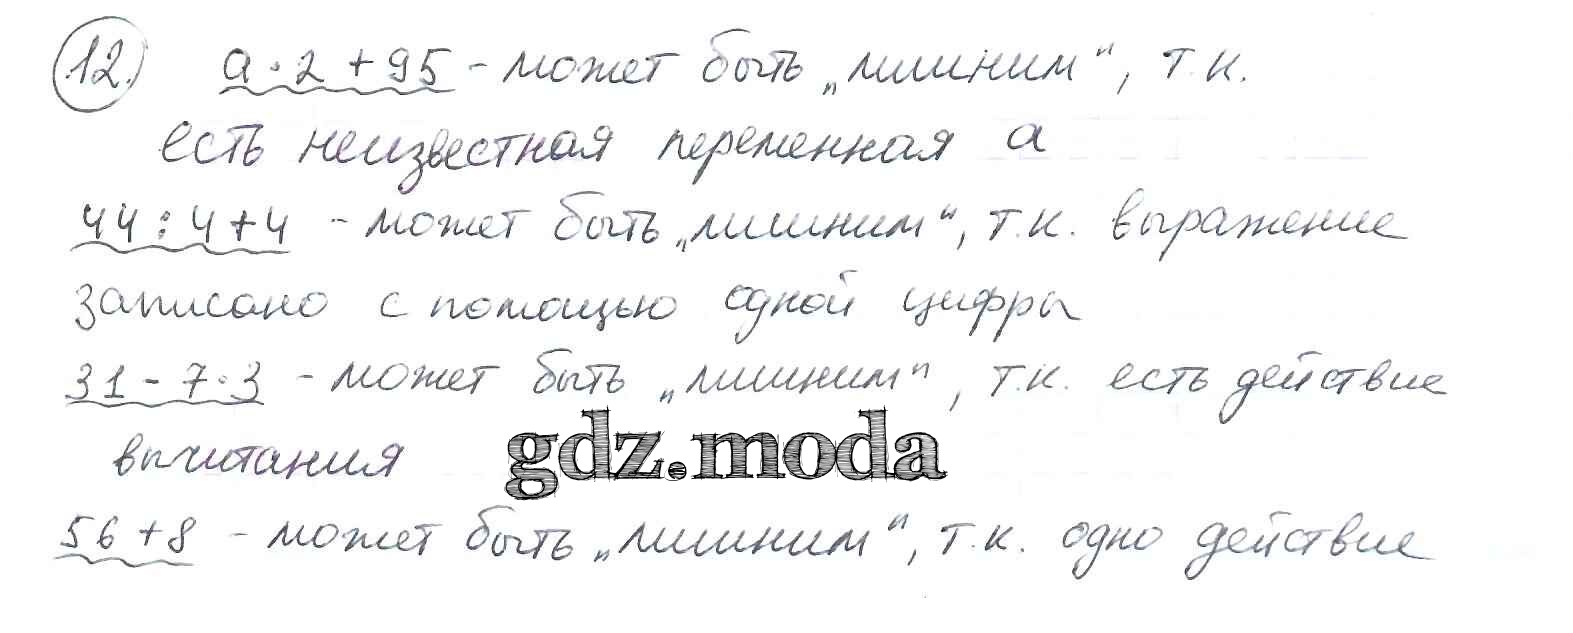 12. a·2+95 - может быть „лишним“, т.к.
есть неизвестная переменная a
44:4+4 - может быть „лишним“, т.к. выражение
записано с помощью одной цифры
31-7·3 - может быть „лишним“, т.к. есть действие
вычитания
gdz.moda
56+8 - может быть „лишним“, т.к. одно действие